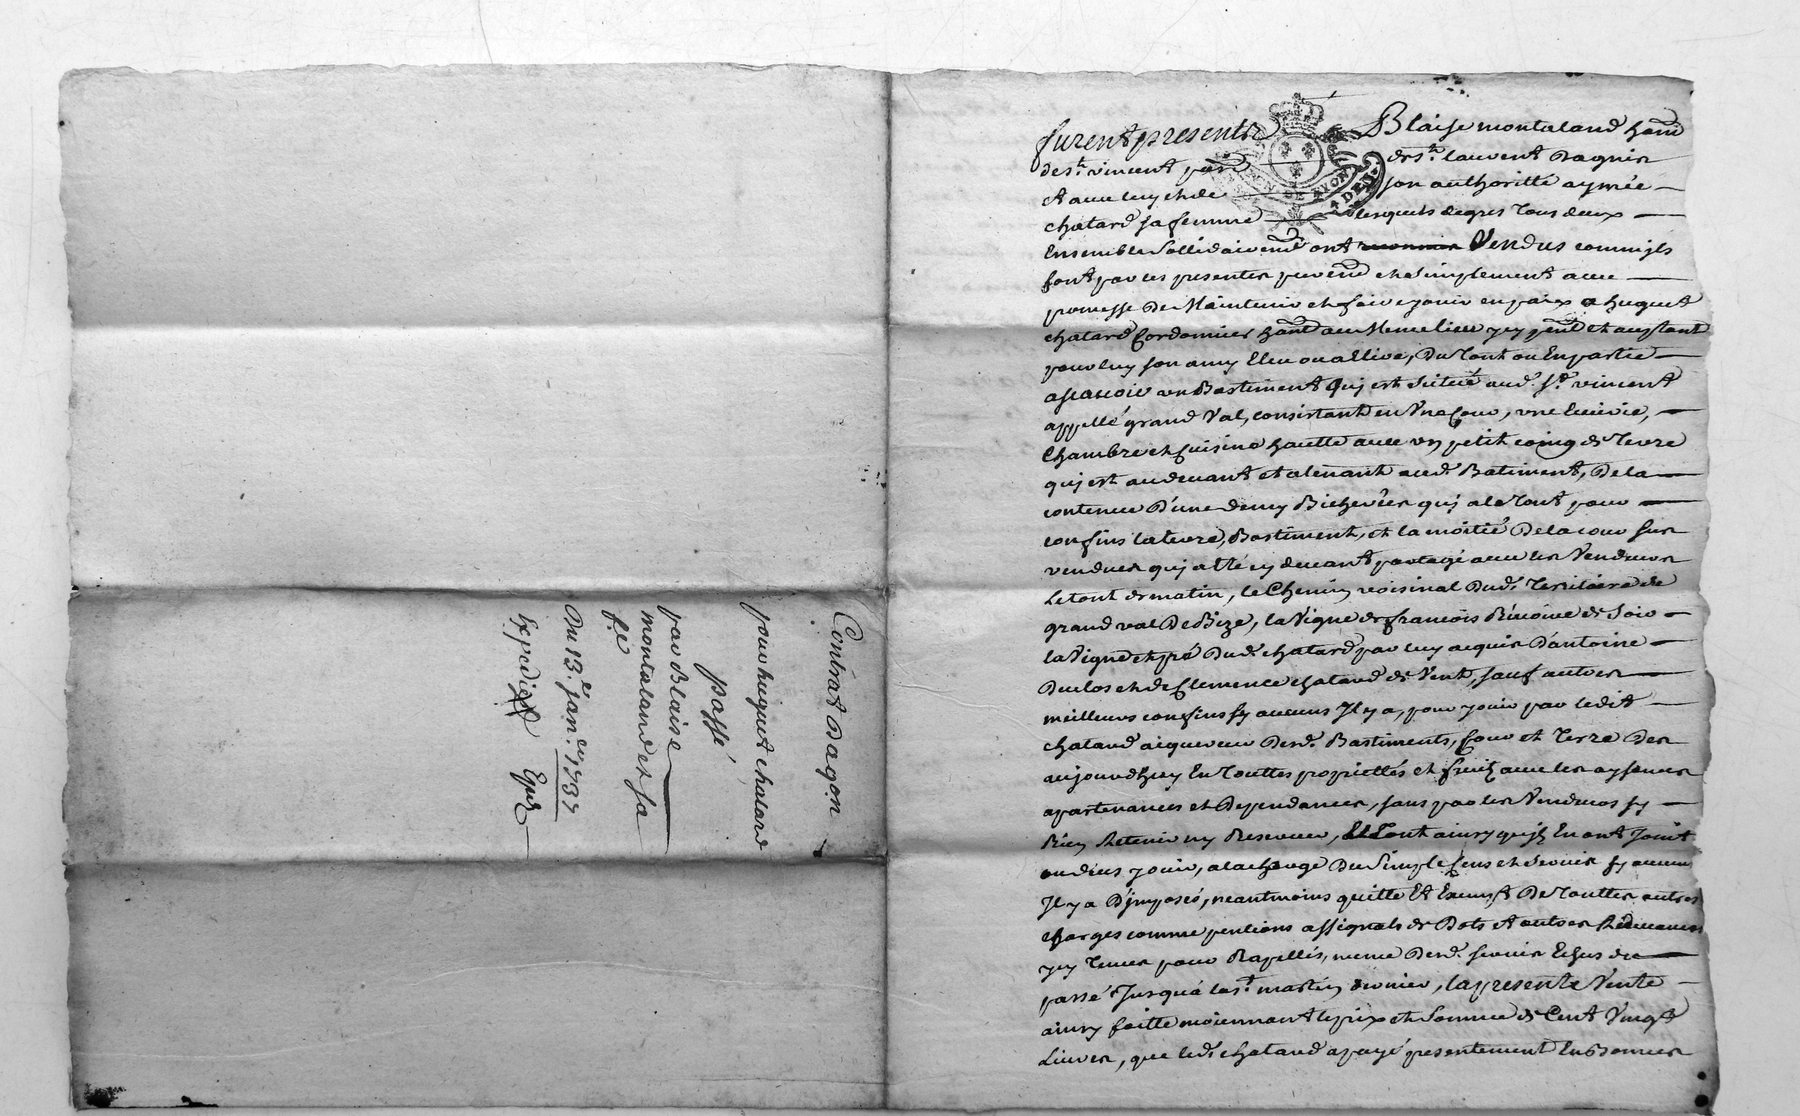 Contrat Daqon
pour huguet chatard
passé
par Blaise
montaland et sa
fe
Du 13e janer 1737
Expedié
furent presents Blaise montaland hant
de st vincent par de st laurent Dagnin
et avec luy et de son authoritté aymée
chatard sa femme lesquels de gres tous deux
Ensemble sollidairemt ont Vendus comm'ils
font par ces presentes puremt et simplement avec
promesse De Maintenir et faire jouir en paix a huguet
chatard Cordonnier hant au Meme lieu jcy pnt et acceptant
pour luy son amy Eleu ou a Elire, Du tout ou En partie
ascavoir un Bastiment Quj est scitué aud. st vincent
appellé grand Val, consistant en Une Cour, une Ecurie,
Chambre et Cuisine haulte avec un petit coing de Terre
quj est au devant et atenant aud. Batiment, De la
contenue D'une demy Bicherée quj a le tout pour
confins la terre, Bastiment, et la moitié De la cour sus
vendues quj a été cy devant partagé avec les Vendeurs
Le tout de matin, le Chemin voisinal Dud. Territoire de
grand val De Bize, la Vigne de françois Bénoive de Soir
la Vigne et pré Dud. chatard par luy acquis D'antoine
Duclos et de Clemence chatard de Vent, sauf autres
meilleurs confins sy aucuns Jl y a, pour jouir par ledit
chatard acquereur Desd. Bastiments, Cour et Terre Des
aujourd'huy En touttes proprietés et fruits avec les aysances
apartenances et Dependances, sans par les Vendeurs sy
Rien Retenir ny Reserver, Et Tout ainsy qu'jls En ont Jouit
ou deus jouir, a la charge Du Simple Cens et servis sy aucun
Jl y a D'jmposés, neantmoins quitte Et Exempt De touttes autres
charges comme pentions assignats de Dots et autres Redevances
jcy tenues pour Rapellés, meme Desd. servis Echus de
passé Jusqu'a la st martin dernier, la presente Vente
ainsy faitte moiennant le prix et Somme de Cent Vingt
Livres, que led. chatard a payé presentement En Bonnes